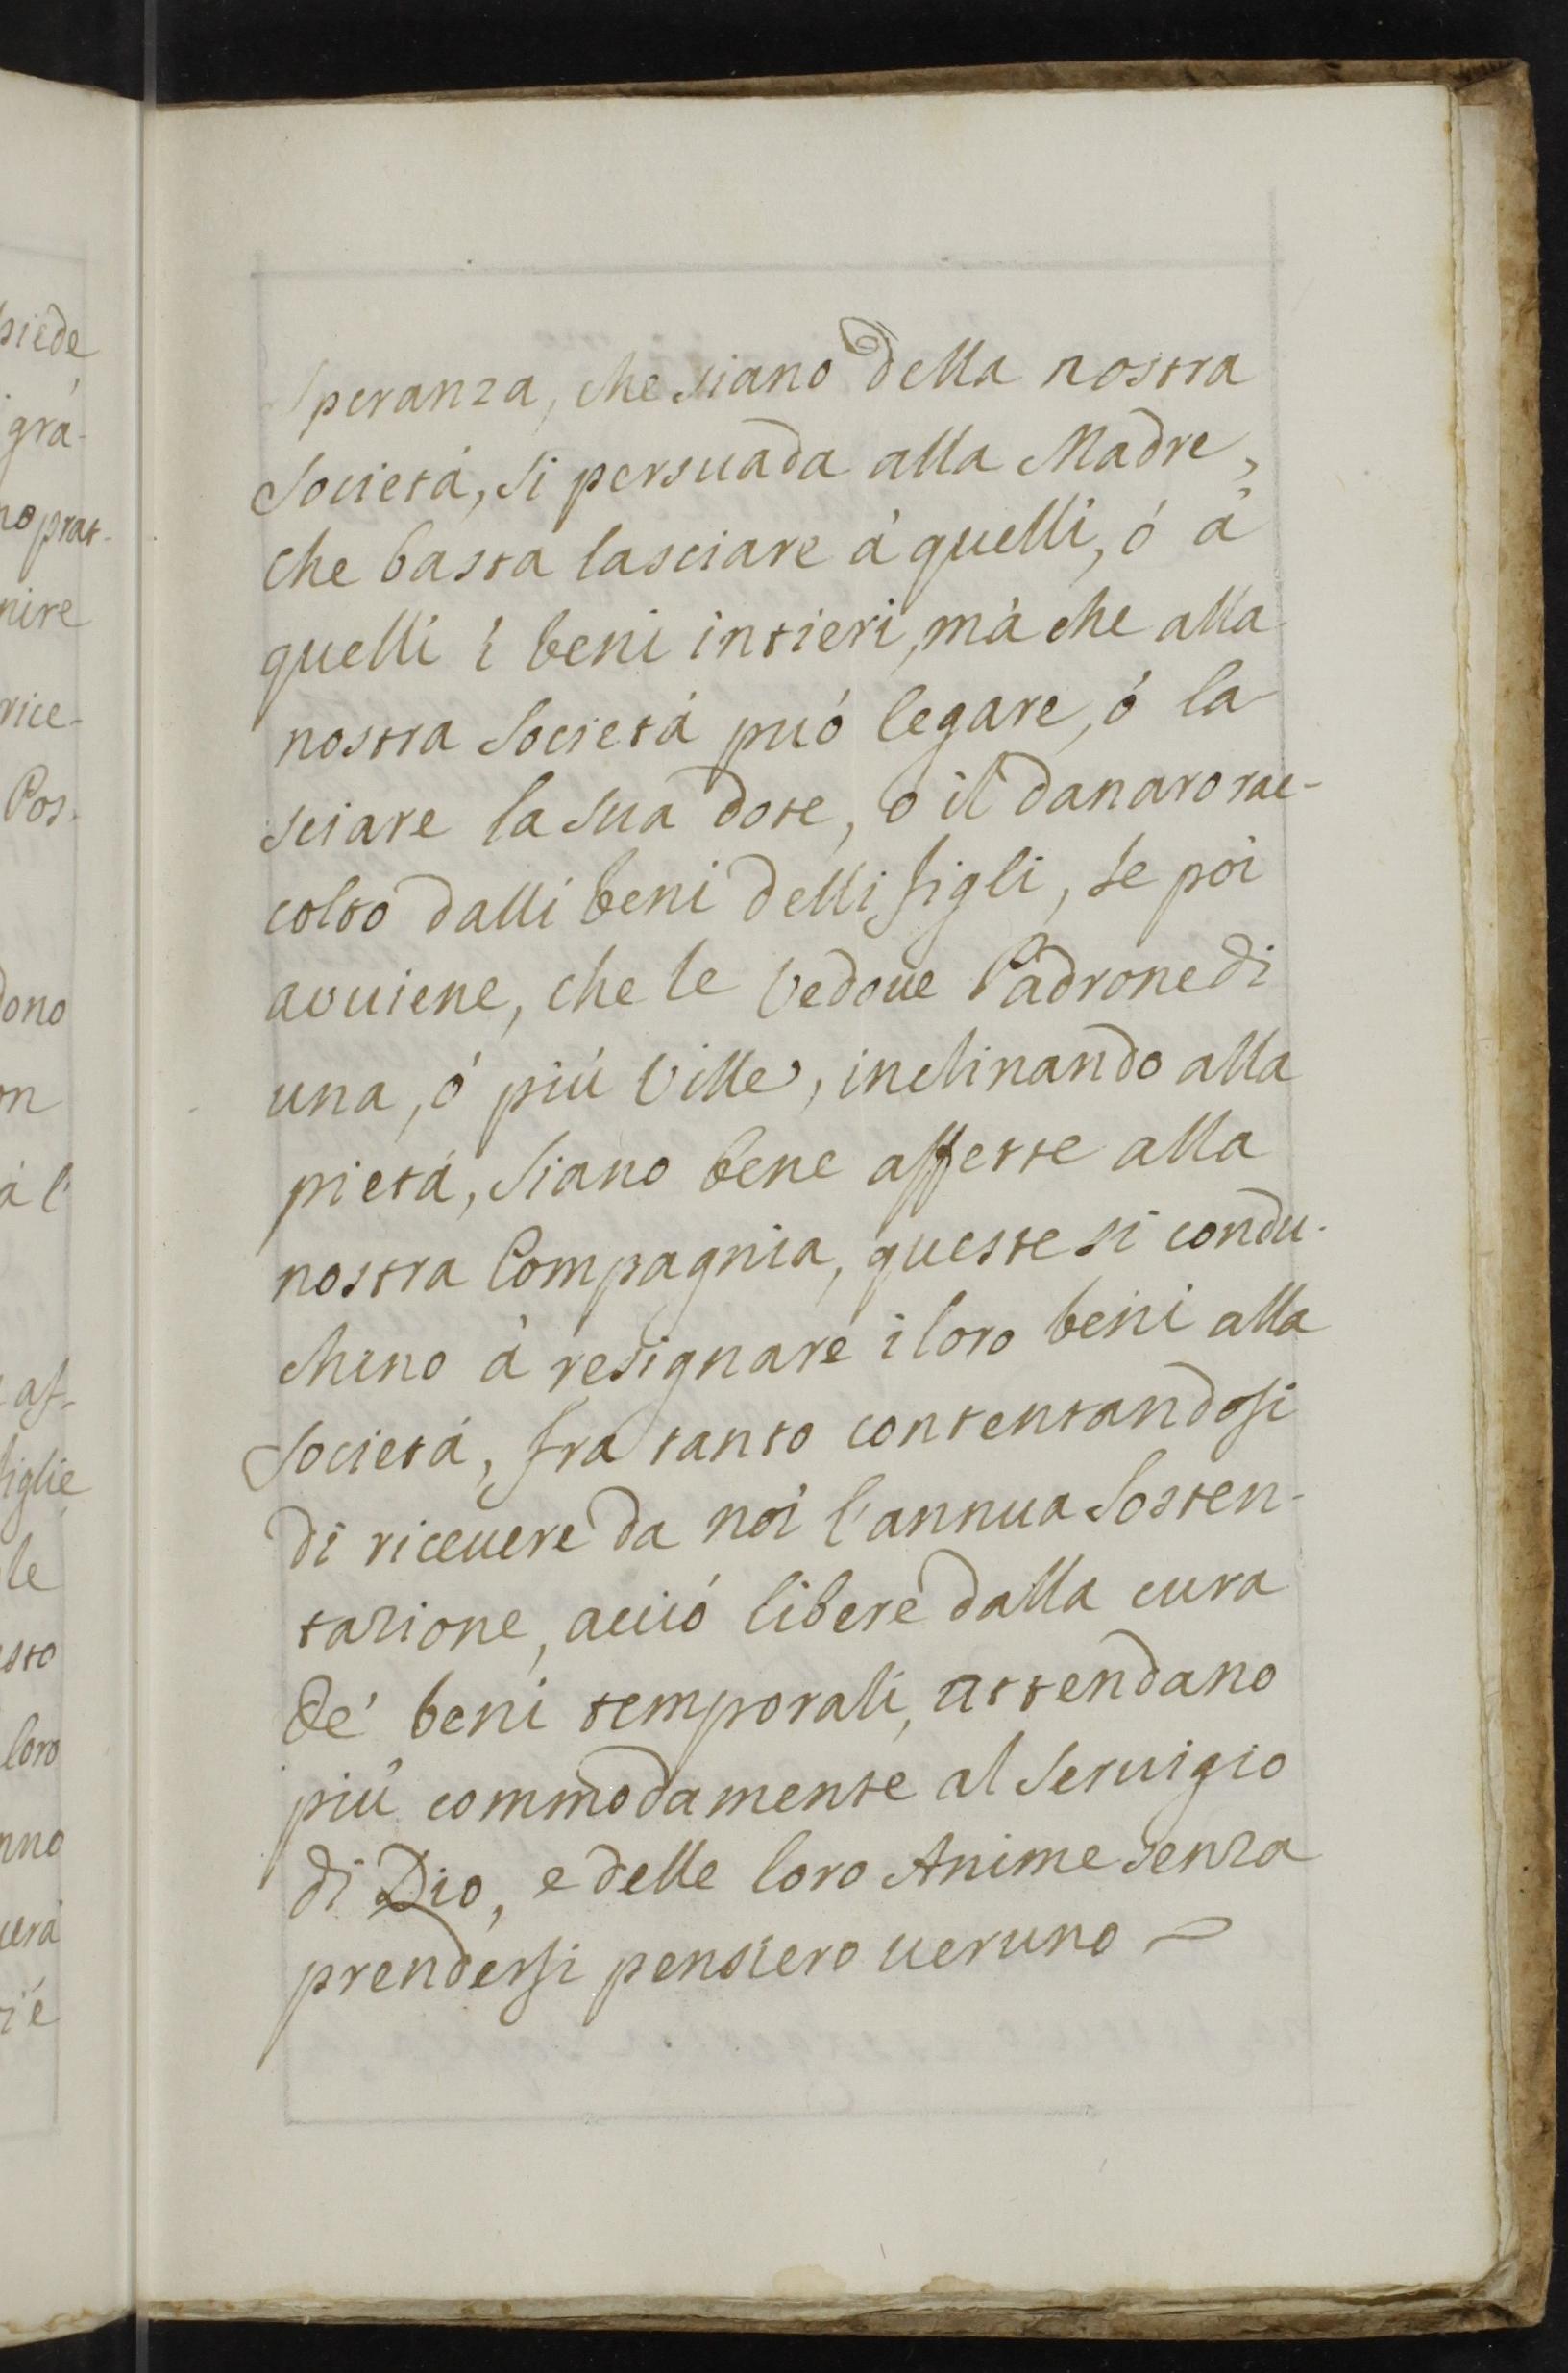 piede
grá-
no prat-
nire
rice-
Pos-
dono
on
à l'
af-
figlie
le
esto
loro
nno
uerá
ri é
Speranza, che siano della nostra
Societá, si persuada alla Madre,
che basta lasciare à quelli, ó à
quelli i beni intieri, mà che alla
nostra Societá puó legare, ó la
sciare la sua dote, o il danaro rac-
colto dalli beni delli figli, se poi
avuiene, che le Vedoue Padrone di
una, ó piú Ville, inclinando alla
pietá, siano bene affette alla
nostra Compagnia, queste si condu-
chino à resignare i loro beni alla
Societá, fra tanto contentandosi
di riceuere da noi l'annua Sosten-
tazione, acció libere dalla cura
de' beni temporali, attendano
piú commodamente al Seruigio
di Dio, e delle loro Anime senza
prendersi pensiero ueruno